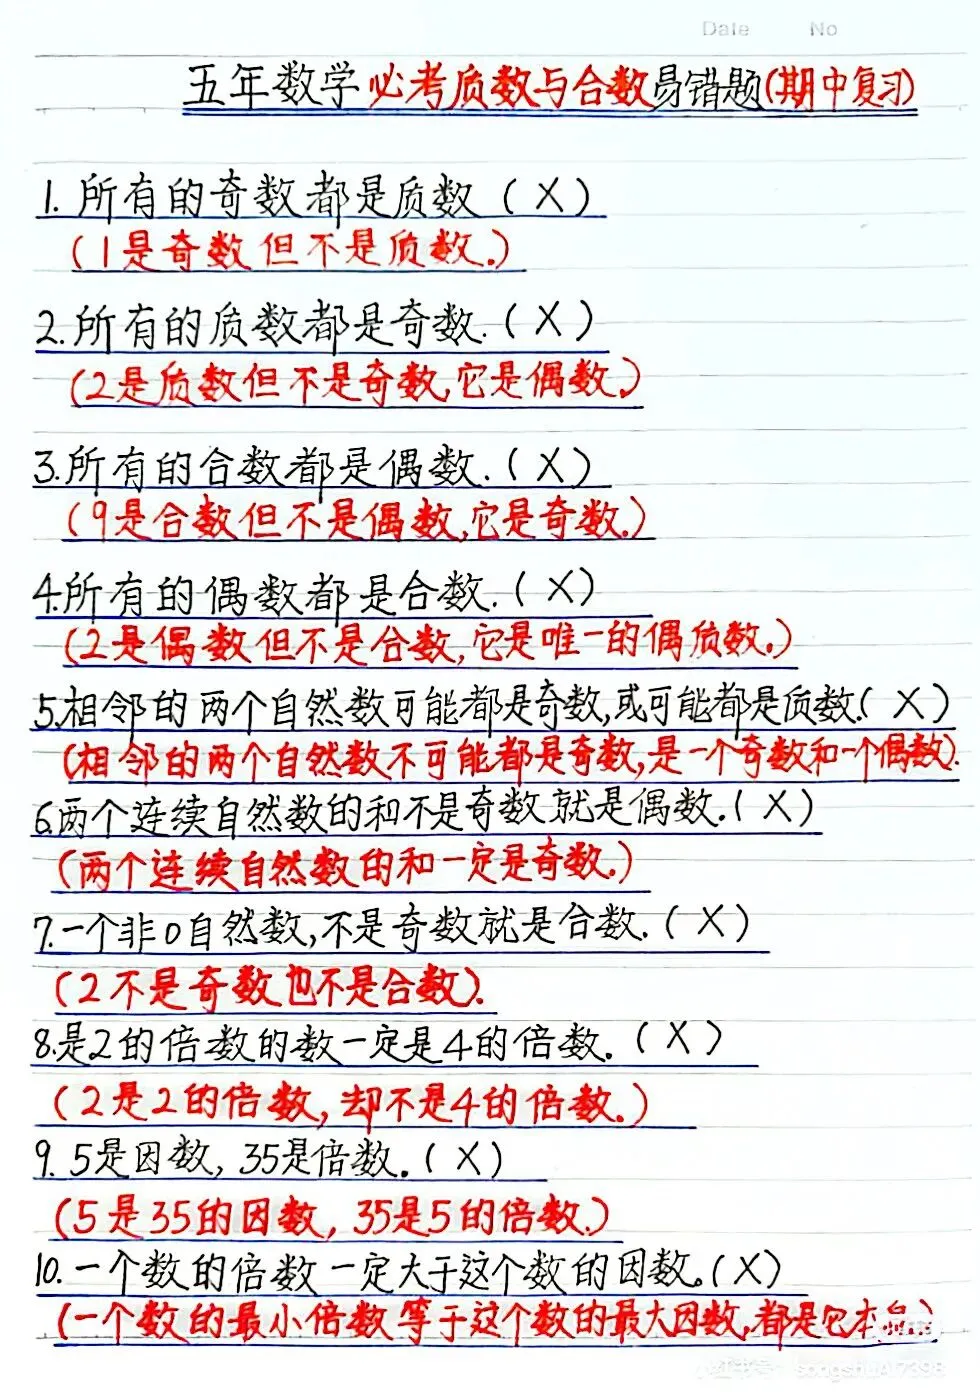 Date No
五年数学必考质数与合数易错题(期中复习)
1. 所有的奇数都是质数(X)
(1是奇数但不是质数.)
2.所有的质数都是奇数.(X)
(2是质数但不是奇数,它是偶数.)
3.所有的合数都是偶数.(X)
(9是合数但不是偶数,它是奇数.)
4.所有的偶数都是合数.(X)
(2是偶数但不是合数,它是唯一的偶质数.)
5.相邻的两个自然数可能都是奇数,或可能都是质数.(X)
(相邻的两个自然数不可能都是奇数,是一个奇数和一个偶数).
6.两个连续自然数的和不是奇数就是偶数.(X)
(两个连续自然数的和一定是奇数.)
7.一个非0自然数,不是奇数就是合数.(X)
(2不是奇数也不是合数).
8.是2的倍数的数一定是4的倍数.(X)
(2是2的倍数,却不是4的倍数.)
9. 5是因数, 35是倍数.(X)
(5是35的因数, 35是5的倍数.)
10. 一个数的倍数一定大于这个数的因数。(X)
(一个数的最小倍数等于这个数的最大因数,都是它本身.)
小红书号: